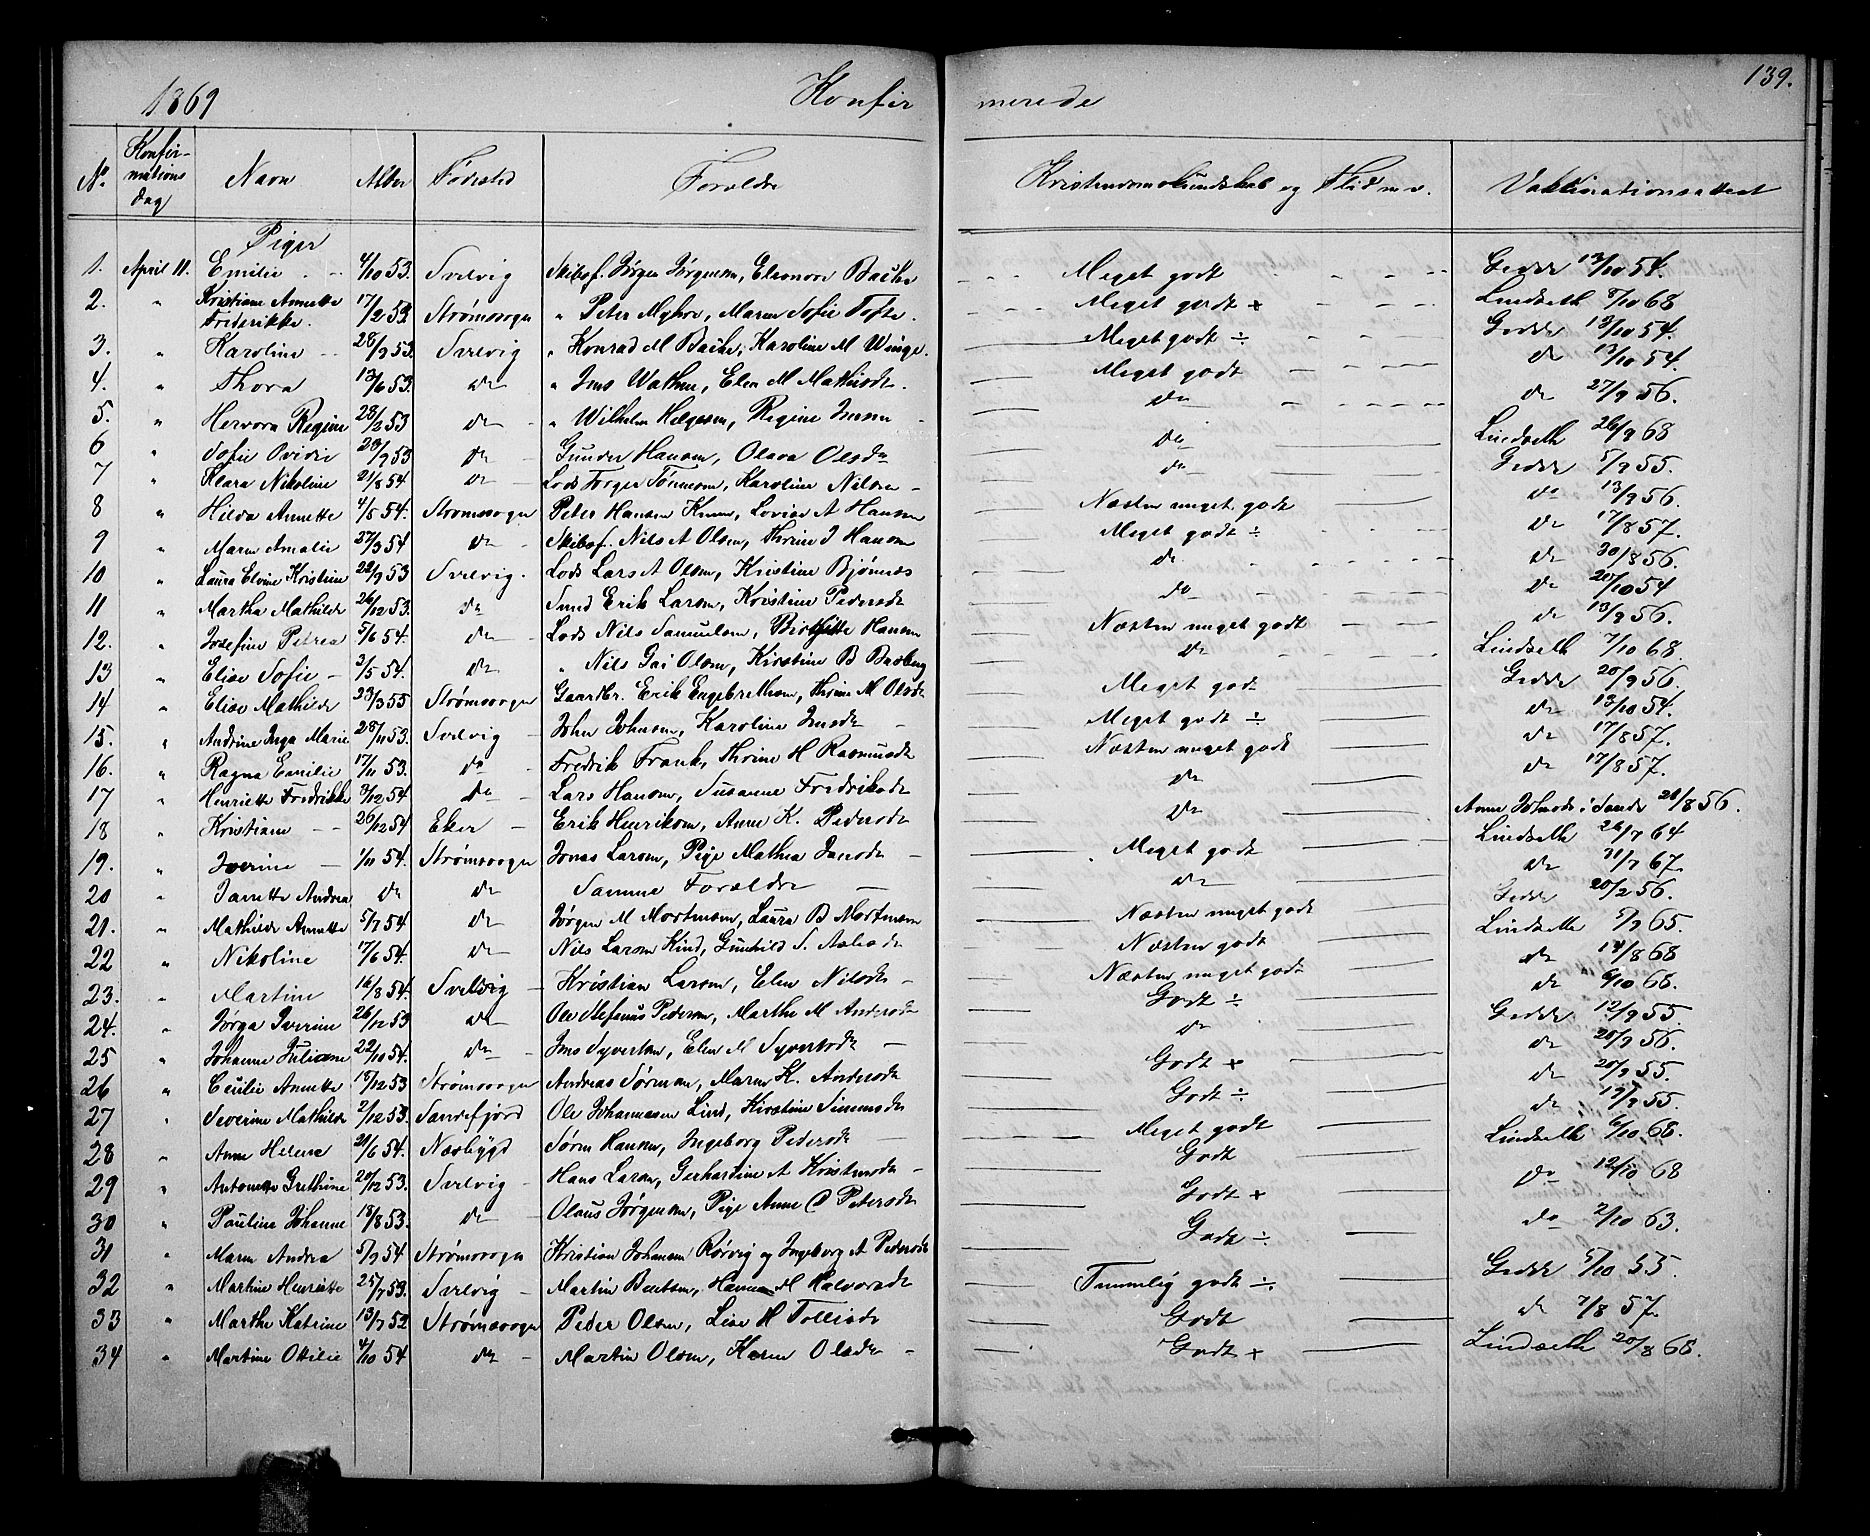 139.
1869 Konfir merede
No. Konfir-mations Dag Navn Alder Fødested Forældre Kristendomskundskab og Flid m.v. Vakkinationsattest
Piger
1. April 11. Emilie 4/10 53. Svelvig Skibsf. Jørgen Jørgensen, Eleonore Bache Meget godt Gedde 13/10 54.
2. " Kristiane Annette Frederikke. 17/2 53. Strømssogn " Peter Myhre, Maren Sofie Tofte. Meget godt + Lindseth 8/10 68
3. " Karoline 28/9 53. Svelvig " Konrad M Bache, Karoline M Winge. Meget godt ÷ Gedde 13/10 54.
4. " Thora 13/6 53. do " Jens Wathne, Elen M Mathisdt. Meget godt do 13/10 54.
5. " Hervora Regine 28/2 53 do " Wilhelm Helgesen, Regine Jensen do do 27/9 56.
6 " Sofie Ovidie 28/9 53 do Gunder Hansen, Olava Olsdt do Lindseth 26/9 68
7 " Klara Nikoline 21/8 54 do Lods Torger Tønnesen, Karoline Nilsen do Gedde 5/9 55.
8 " Hilda Annette 4/5 54. Strømssogn Peter Hansen, Lovise A Hansen Næsten meget godt do 13/9 56.
9 " Maren Amalie 27/3 54 do Skibsf. Nils A Olsen, Thrine J Hansen Meget godt ÷ do 17/8 57.
10 " Laura Elvine Kristine 22/9 53 Svelvig. Lods Lars A Olsen, Kristine Bjørnæs do do 20/8 56.
11 " Martha Mathilde 26/12 53. do Smed Erik Larsen, Kristine Pedersdt do do 20/10 54
12. " Josefine Petrea 5/6 54. do Lods Nils Samuelsen, Birgitte Hansen Næsten meget godt do 13/9 56.
13 " Elise Sofie 3/5 54. do " Nils Gai Olsen, Kirstine B Basberg do Lindseth 7/10 68.
14 " Elise Mathilde 23/3 55 Strømssogn Gaardbr. Erik Engebrethsen, Thrine M Olsdt Meget godt Gedde 20/9 56.
15. " Andrine Inga Marie 28/11 53. Svelvig John Johnsen, Karoline Jensdt Meget godt ÷ do 13/10 54.
16. " Ragna Emilie 17/11 53. do Fredrik Frank, Thrine H Rasmusdt Næsten meget godt do 17/8 57.
17 " Henriette Fredrikke 3/12 54 do Lars Hansen, Susanne Fredriksdt do do 17/8 57.
18 " Kristiane 26/12 54 Eker Erik Henriksen, Anne K. Pedersdt do Anne Johnsdt i Sande 21/8 56.
19. " Iverine 1/11 54. Strømssogn Jonas Larsen, Pige Mathea Jansdt Meget godt Lindseth 26/7 64
20 " Janette Andrea do do Samme Forældre do do 31/7 67.
21. " Mathilde Annette 5/7 54 do Jørgen M Mortensen, Laura B Mortensen Næsten meget godt Gedde 20/2 56.
22 " Nikoline 17/6 54. do Nils Larsen Kind, Gunhild S. Næsten godt Lindseth 5/9 65.
23. " Martine 16/8 54. Svelvig Kristian Larsen, Elen Nilsdt Næsten meget godt do 14/8 68
24. " Jørga Iverine 26/12 53 do Ole Stefanus Pedersen, Marthe M Andersdt Godt ÷ do 6/10 68.
25 " Johanne Juliane 22/10 54. do Jens Syvertsen, Elen M Syvertsdt do Gedde 12/9 55
26 " Cecilie Annette 18/12 53 Strømssogn Andreas Sørensen, Maren K. Andersdt Godt + do 20/9 56.
27 " Severine Mathilde 2/12 53. Sandefjord Ole Johannesen Lind, Kirstine Simensdt Godt ÷ do 20/9 55.
28 " Anne Helene 21/6 54. Næsbygd Søren Hansen, Ingeborg Pedersdt Meget godt do 17/9 55.
29 " Antonette Grethine 20/12 53. Svelvig Hans Larsen, Gerhardine A Kristensdt Godt Lindseth 6/10 68.
30 " Pauline Johanne 18/8 53. do Olaus Jørgensen, Pige Anne C Petersdt Godt + do 12/10 68
31 " Maren Andrea 5/9 54 Strømssogn Kristian Johansen Rørvig og Ingeborg A Pedersdt Godt ÷ do 2/10 63.
32 " Martine Henriette 25/7 53. Svelvig Martin Bentsen, Hanne M Halvorsdt Temmelig godt ÷ Gedde 5/10 55.
33 " Marthe Katrine 13/7 52 Strømssogn Peder Olsen, Lise H Tollisdt Godt do 7/8 57
34 " Martine Ottilie 4/10 54 do Martin Olsen, Karen Olsdt Godt + Lindseth 20/8 68.